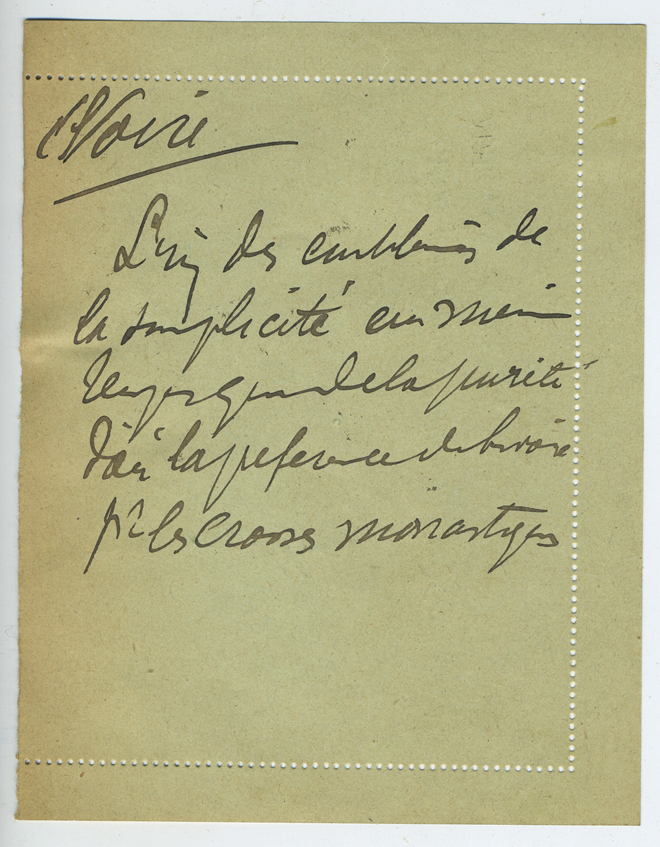 Ivoire
L'un des emblèmes de
la simplicité en même
temps que de la pureté
d'où la préférence de l'ivoire
pr les crosses monastiques